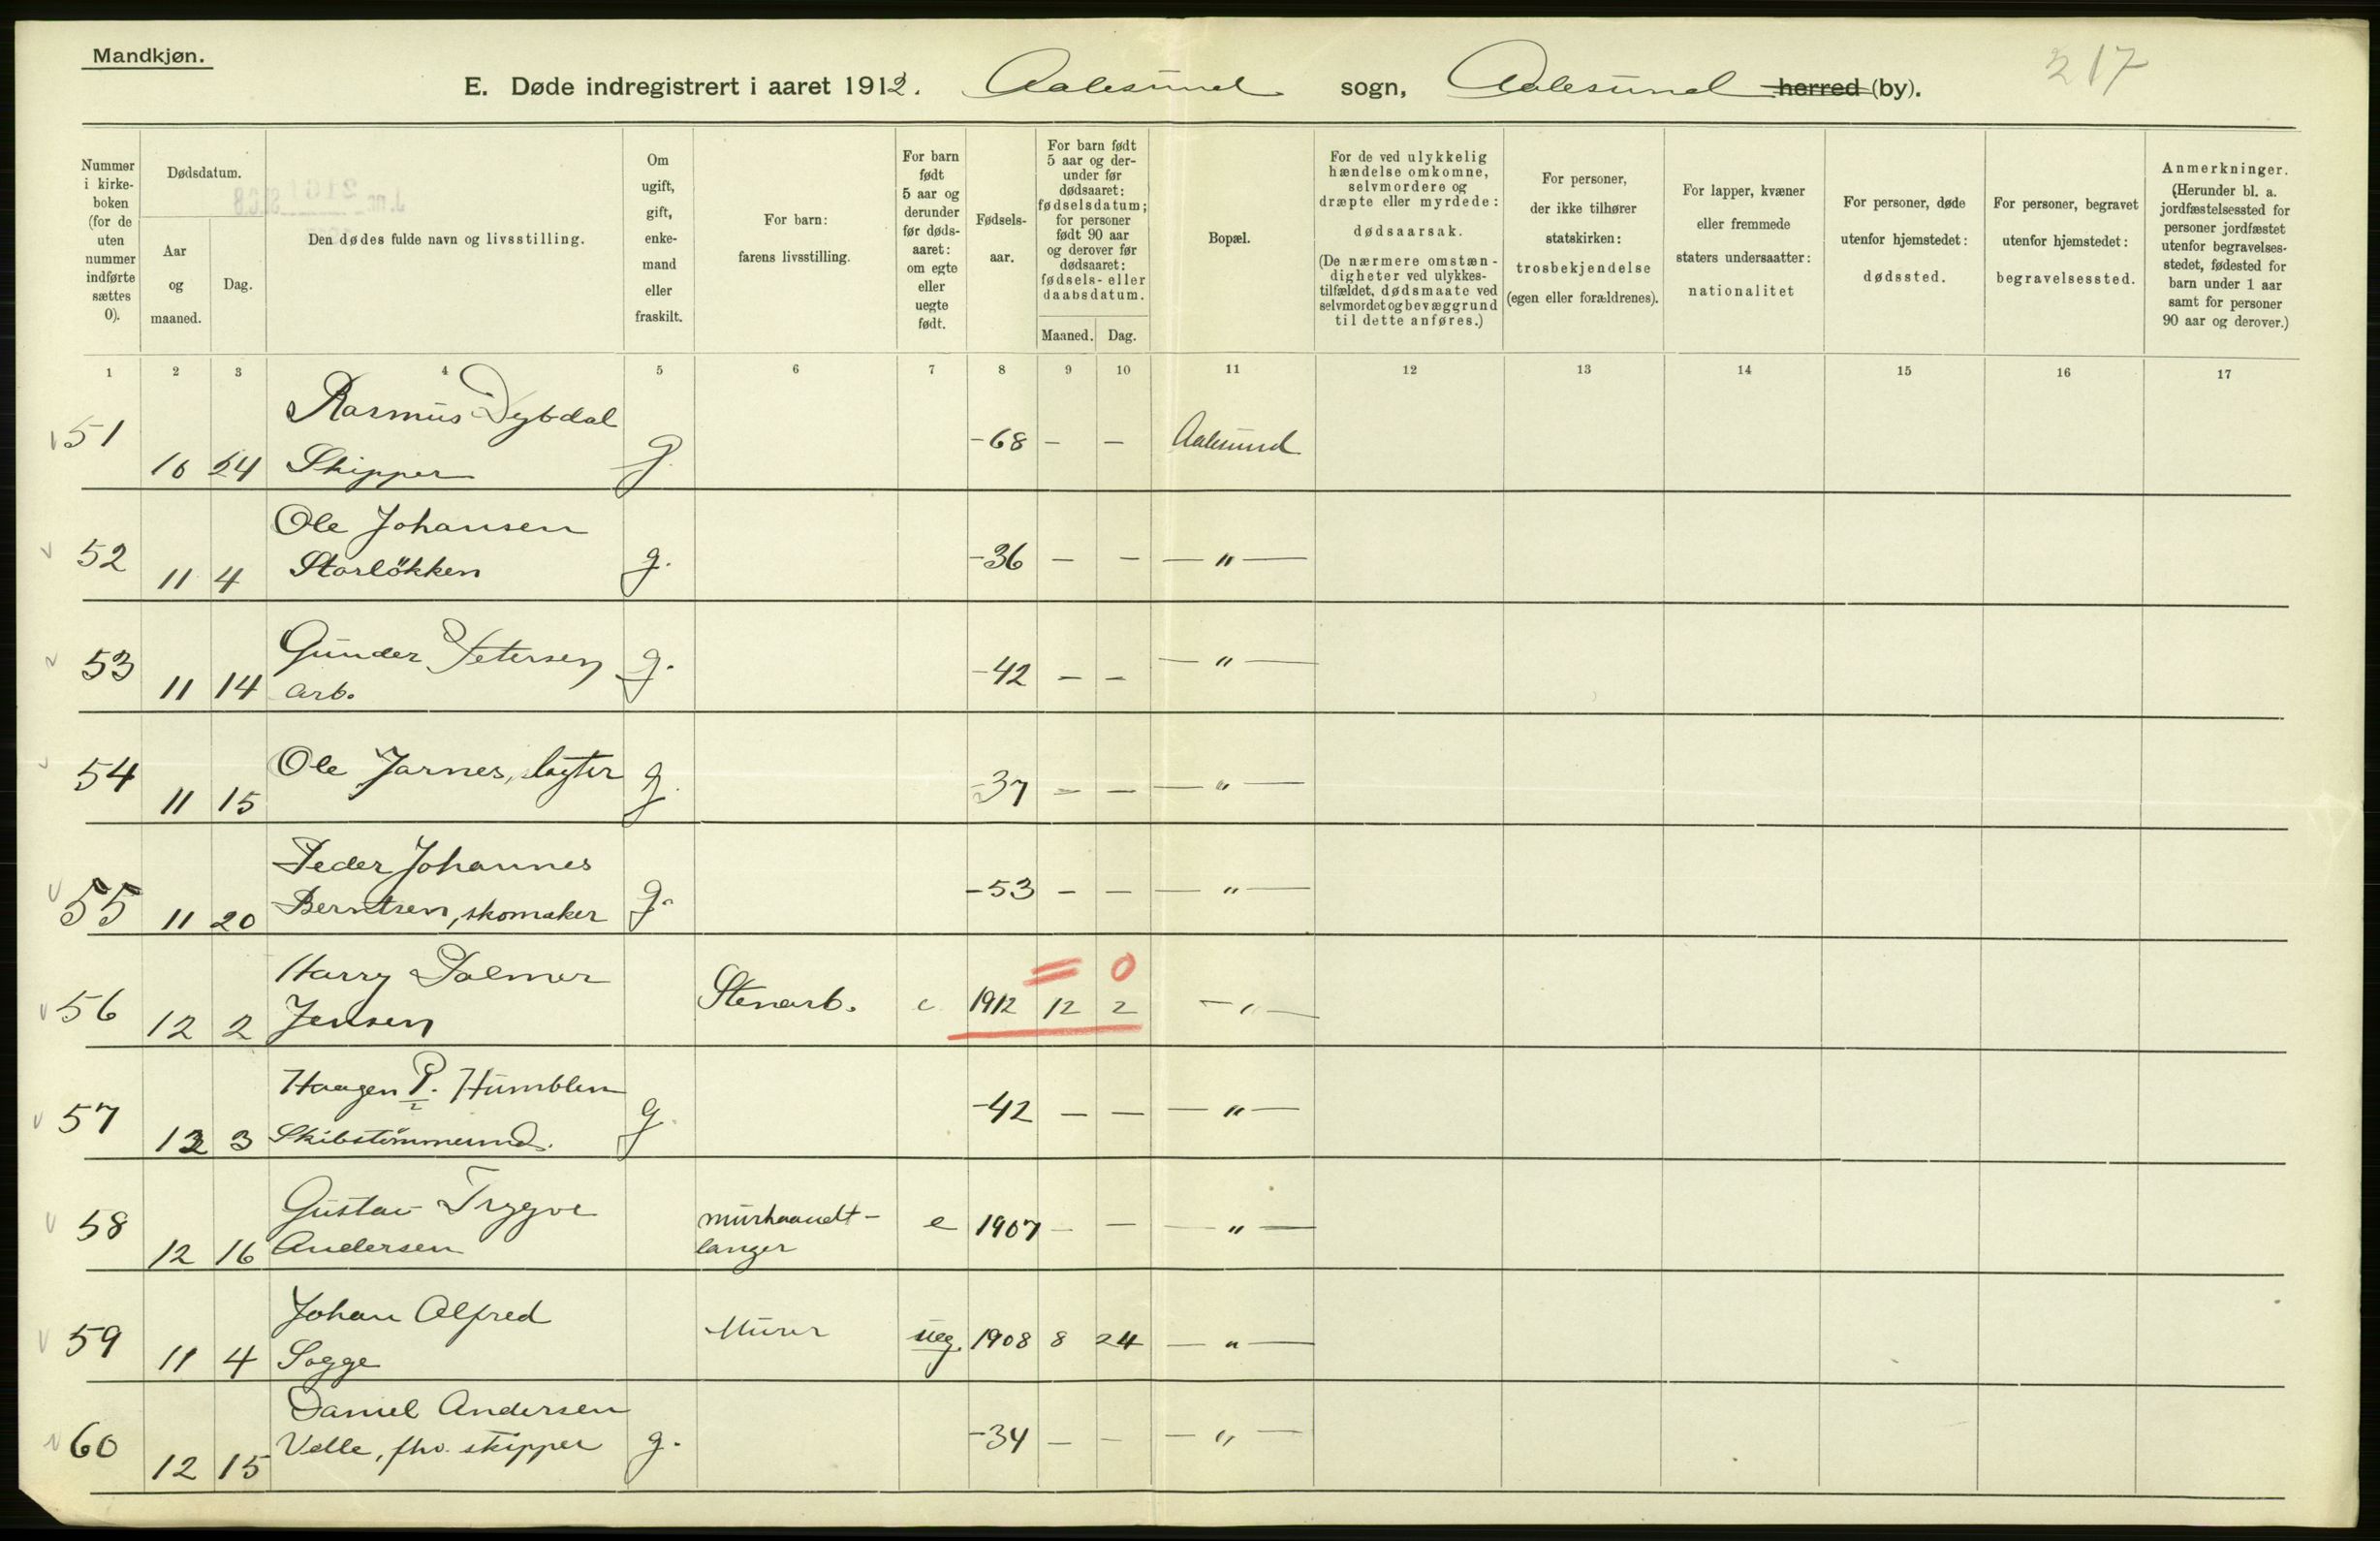 Mandkjøn.
217
E. Døde indregistrert i aaret 1912. Aalesund sogn, Aalesund herred (by).
Nummer i kirke- boken (for de uten nummer indførte sættes 0).
Dødsdatum.
Aar og maaned.
Dag.
Den dødes fulde navn og livsstilling.
Om ugift, gift, enke- mand eller fraskilt.
For barn: farens livsstilling.
For barn født 5 aar og derunder før døds- aaret: om egte eller uegte født.
Fødsels- aar.
For barn født 5 aar og der- under før dødsaaret: fødselsdatum; for personer født 90 aar og derover før dødsaaret: fødsels- eller daabsdatum.
Maaned. Dag.
Bopæl.
For de ved ulykkelig hændelse omkomne, selvmordere og dræpte eller myrdede: dødsaarsak. (De nærmere omstæn- digheter ved ulykkes- tilfældet, dødsmaate ved selvmordet og bevæggrund til dette anføres.)
For personer, der ikke tilhører statskirken: trosbekjendelse (egen eller forældrenes).
For lapper, kvæner eller fremmede staters undersaatter: nationalitet
For personer, døde utenfor hjemstedet: dødssted.
For personer, begravet utenfor hjemstedet: begravelsessted.
Anmerkninger. (Herunder bl. a. jordfæstelsessted for personer jordfæstet utenfor begravelses- stedet, fødested for barn under 1 aar samt for personer 90 aar og derover.)
1 2 3 4 5 6 7 8 9 10 11 12 13 14 15 16 17
Rasmus Dybdal
51 10 24 Skipper g. -68 – – Aalesund
Ole Johansen
52 11 4 Storlökken g. -36 – – — " —
Gunder Petersen
53 11 14 arb. g. -42 – – — " —
54 11 15 Ole Jarnes, slagter g. -37 – – — " —
Peder Johannes
55 11 20 Berntsen, skomaker g. -53 – – — " —
Harry Palmer = 0
56 12 2 Jensen Stenarb. e 1912 12 2 — " —
Haagen P. Humblen
57 12 3 Skibstömmermd. g. -42 – – — " —
Gustav Trygve murhaandt-
58 12 16 Andersen langer e 1907 – – — " —
Johan Alfred
59 11 4 Sogge Murer ueg. 1908 8 24 — " —
Daniel Andersen
60 12 15 Velle, fhv. skipper g. -34 – – — " —